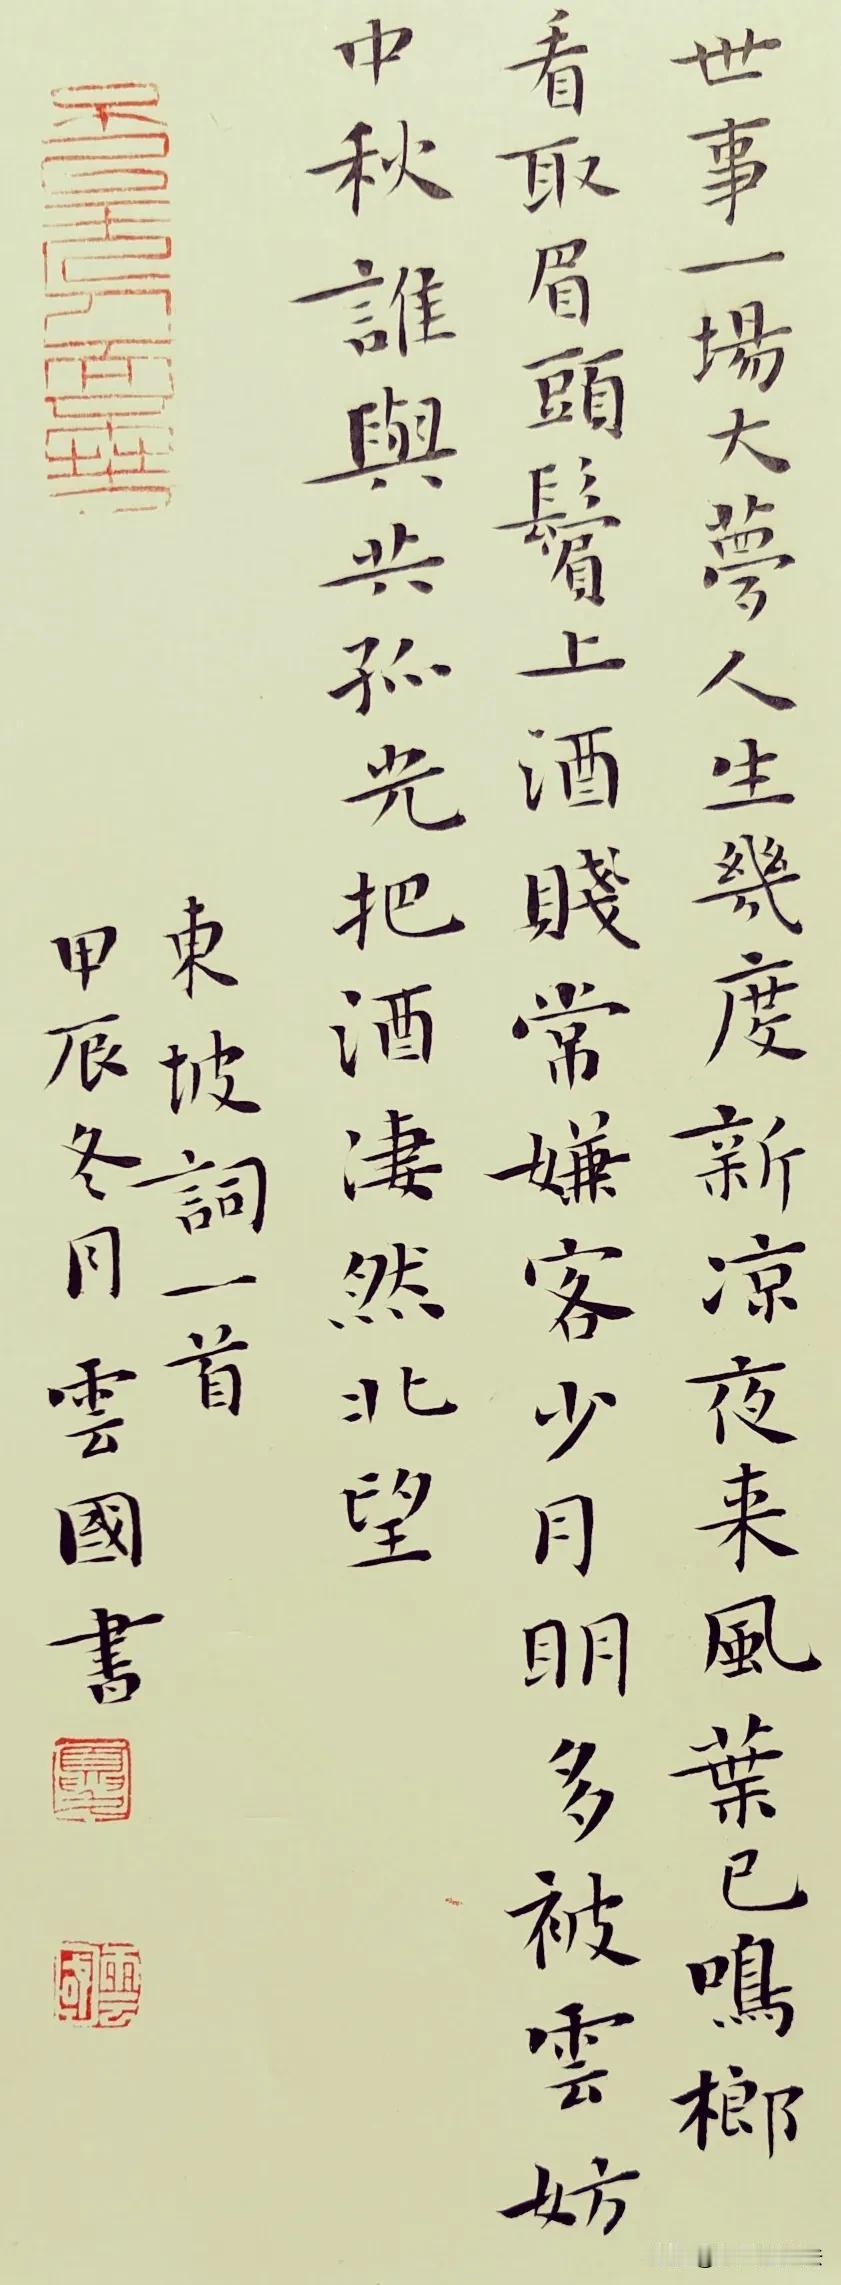 世事一場大夢人生幾度新凉夜来風葉已鳴榔
看取眉頭鬢上酒賤常嫌客少月明多被雲妨
中秋誰與共孤光把酒凄然北望
東坡詞一首
甲辰冬月雲國書
雲國